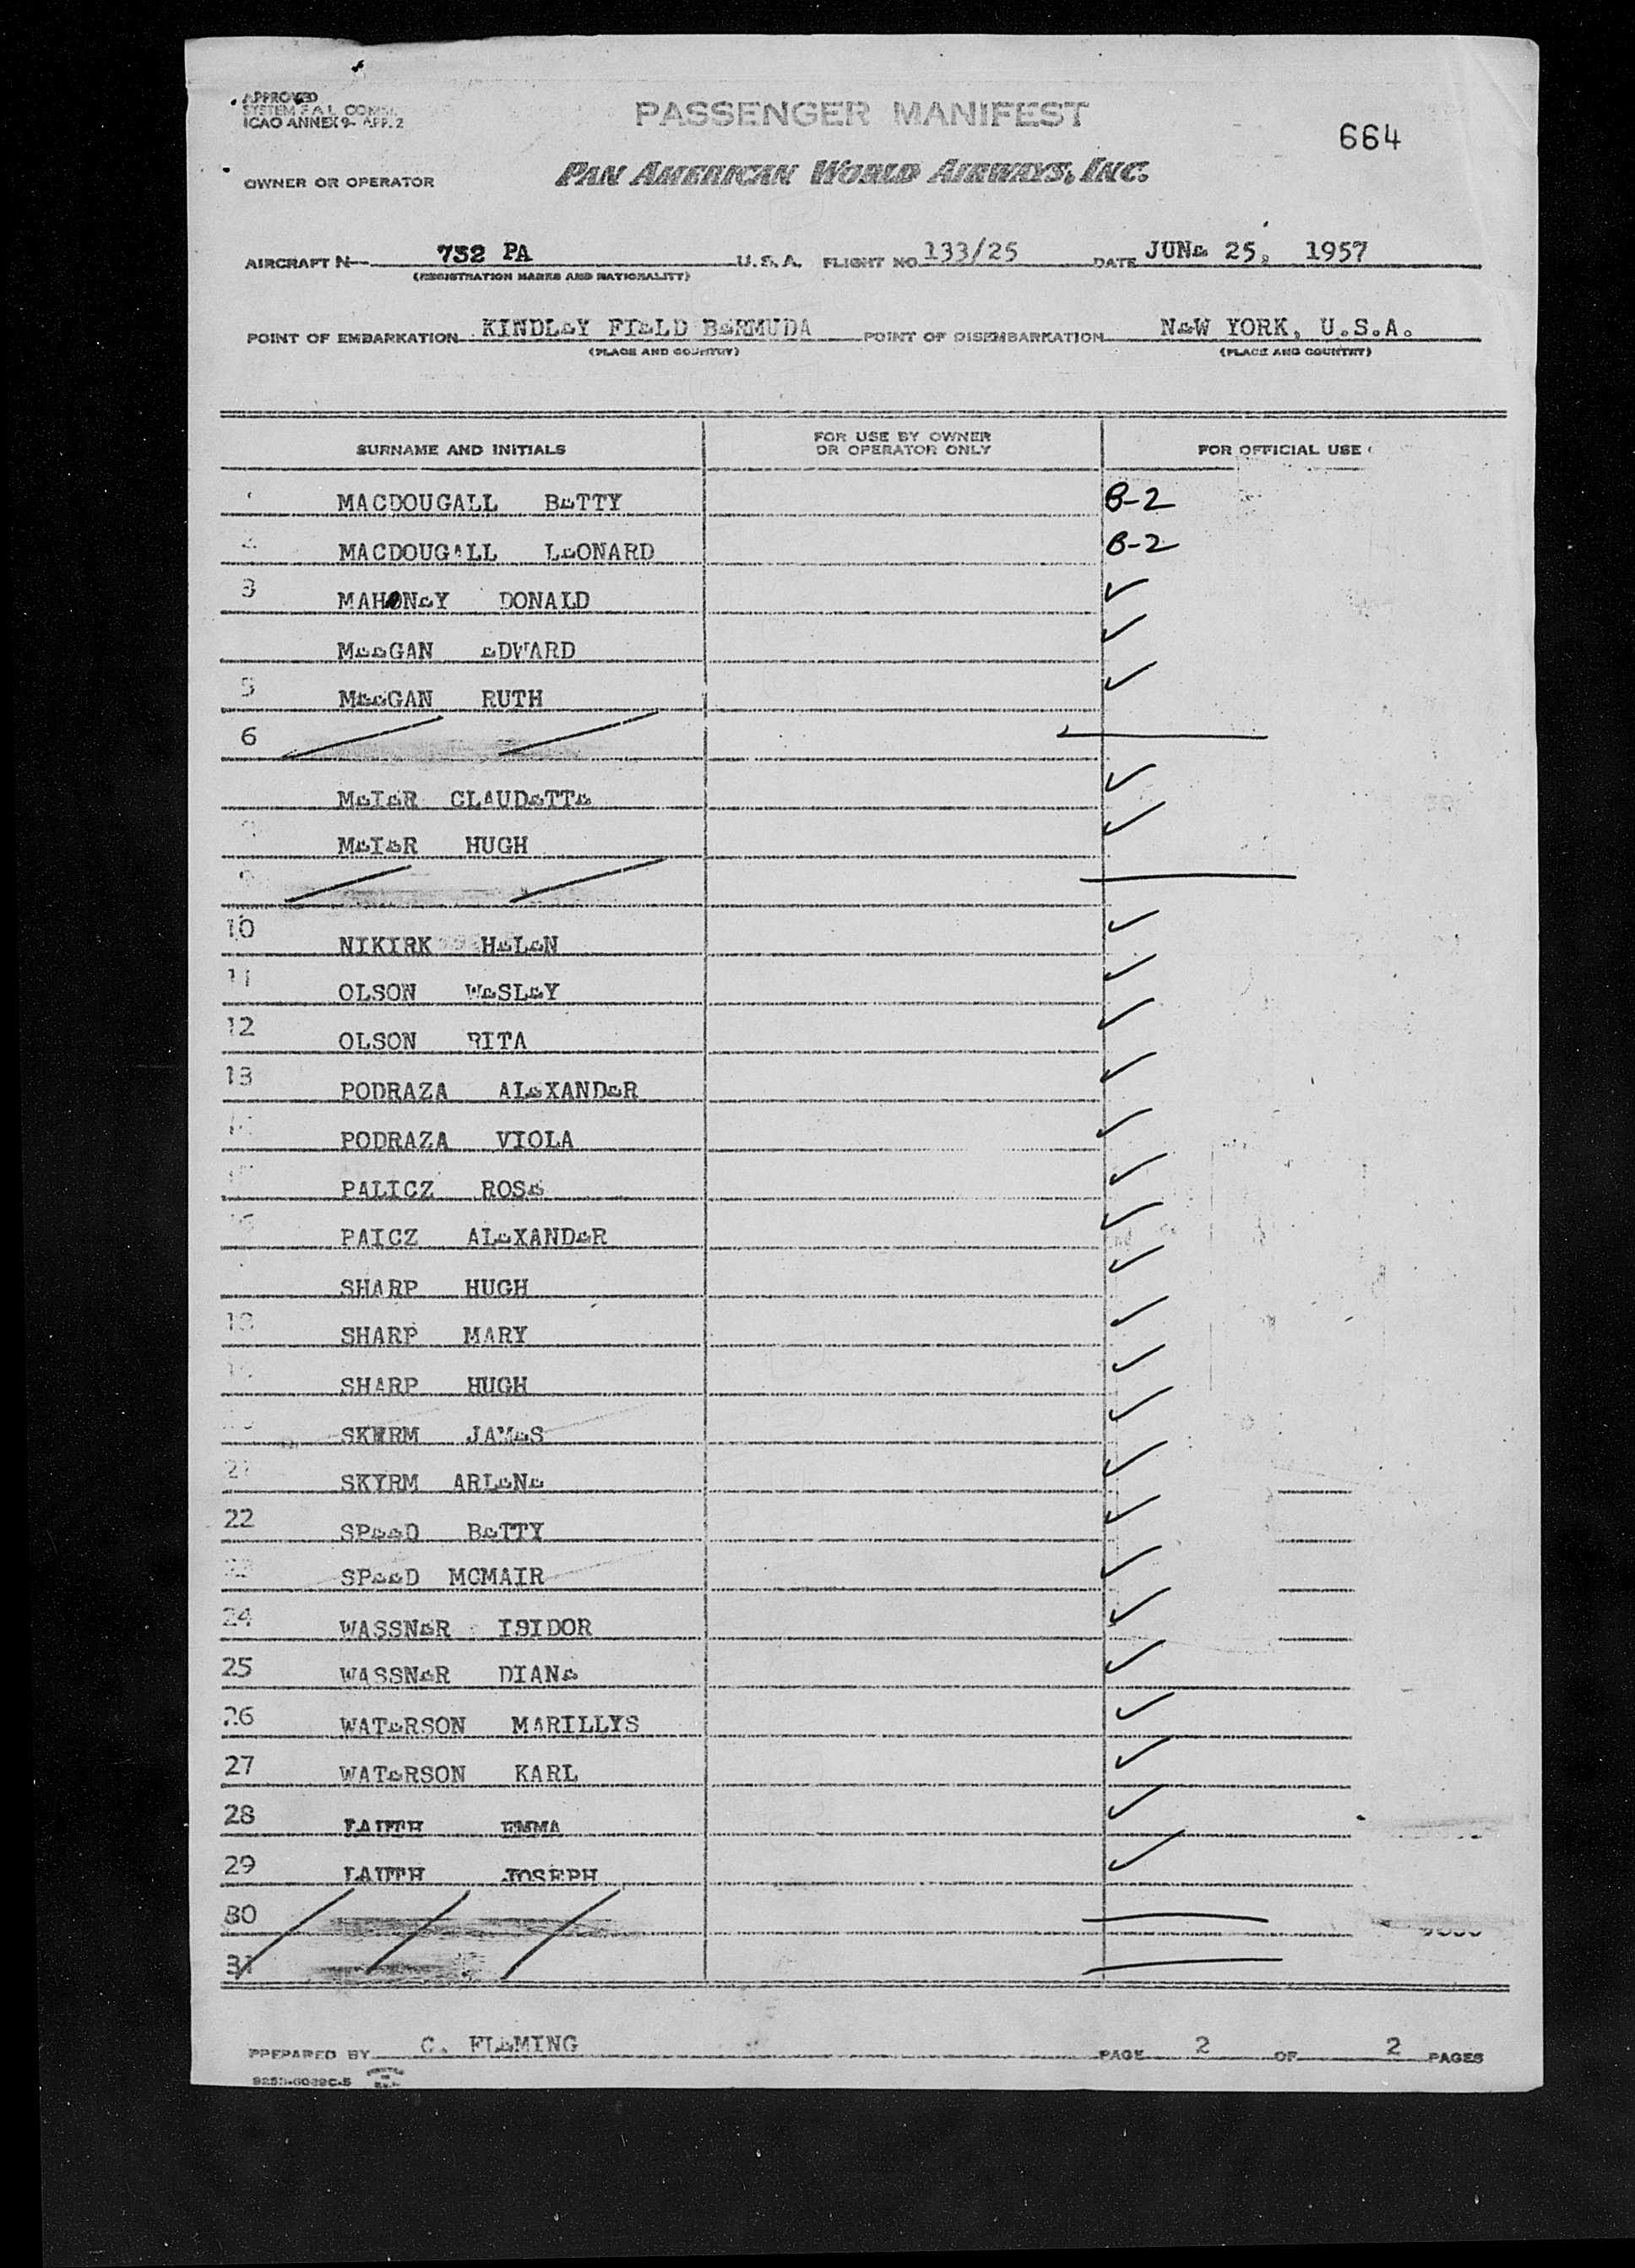 APPROVED
SYSTEM F.A.L. COMM.
ICAO ANNEX 9- APP. 2
PASSENGER MANIFEST
664
OWNER OR OPERATOR PAN AMERICAN WORLD AIRWAYS, INC.
AIRCRAFT N 752 PA U.S.A. FLIGHT NO 133/25 DATE JUNE 25, 1957
(REGISTRATION MARKS AND NATIONALITY)
POINT OF EMBARKATION KINDLEY FIELD BERMUDA POINT OF DISEMBARKATION NEW YORK, U.S.A.
(PLACE AND COUNTRY) (PLACE AND COUNTRY)
SURNAME AND INITIALS FOR USE BY OWNER OR OPERATOR ONLY FOR OFFICIAL USE
MACDOUGALL BETTY B-2
MACDOUGALL LEONARD B-2
3 MAHONEY DONALD ✓
MEEGAN EDWARD ✓
5 MEEGAN RUTH ✓
6
MEIER CLAUDETTE ✓
MEIER HUGH ✓
9
10 NIKIRK HELEN ✓
11 OLSON WESLEY ✓
12 OLSON RITA ✓
13 PODRAZA ALEXANDER ✓
PODRAZA VIOLA ✓
PALICZ ROSE ✓
16 PAICZ ALEXANDER ✓
SHARP HUGH ✓
18 SHARP MARY ✓
SHARP HUGH ✓
SKYRM JAMES ✓
21 SKYRM ARLENE ✓
22 SPEED BETTY ✓
23 SPEED MCMAIR ✓
24 WASSNER ISIDOR ✓
25 WASSNER DIANE ✓
26 WATERSON MARILLYS ✓
27 WATERSON KARL ✓
28 LAUTH EMMA ✓
29 LAUTH JOSEPH ✓
30
31
PREPARED BY C. FLEMING PAGE 2 OF 2 PAGES